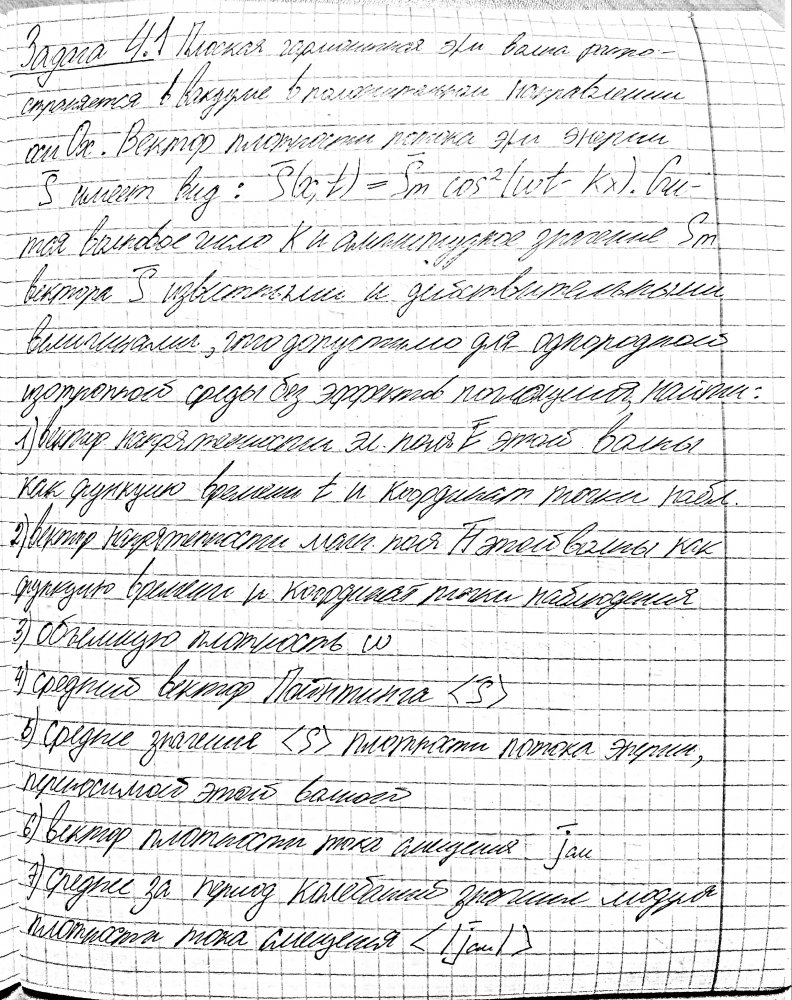 Задача 4.1 Плоская гармоничная эм волна распро-
страняется в вакууме в положительном направлении
оси Ох. Вектор плотности потока эм энергии
S̄ имеет вид: S̄(x,t) = S̄m cos²(ωt - kx). Счи-
тая волновое число K и амплитудное значение Sm
вектора S̄ известными и действительными
величинами, что допустимо для однородной
изотропной среды без эффектов поглощения, найти:
1) вектор напряженности эл. поля Ē этой волны
как функцию времени t и координат точки набл.
2) вектор напряженности магн. поля H̄ этой волны как
функцию времени и координат точки наблюдения
3) объемную плотность ω
4) средний вектор Пойнтинга <S̄>
5) средние значения <S> плотности потока энергии,
переносимой этой волной
6) вектор плотности тока смещения j̄см
7) среднее за период колебаний значение модуля
плотности тока смещения <|j̄см|>